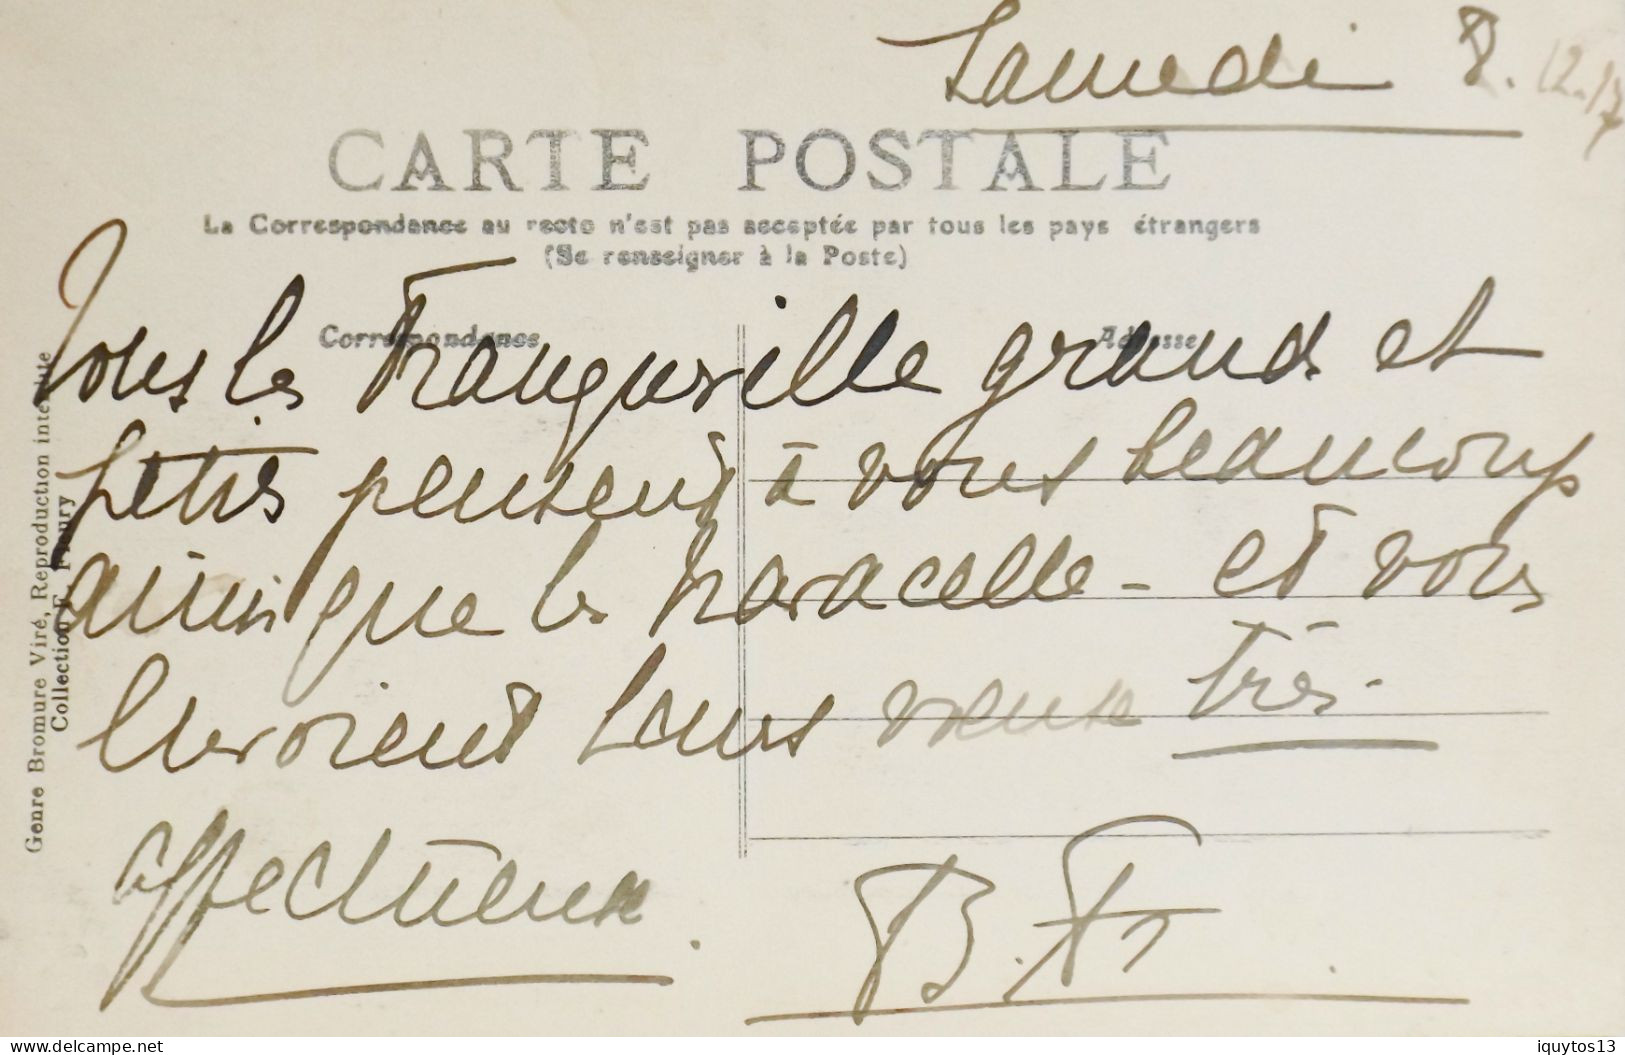 Samedi 8. 12.17
CARTE POSTALE
La Correspondance au recto n'est pas acceptée par tous les pays étrangers
(Se renseigner à la Poste)
Correspondance
Adresse
Tous les Franqueville grands et
petits pensent à vous beaucoup
ainsi que les - et vous
envoient leurs vœux très
affectueux.
B. Fr.
Genre Bromure Viré, Reproduction interdite
Collection F. Fleury
www.delcampe.net
iquytos13